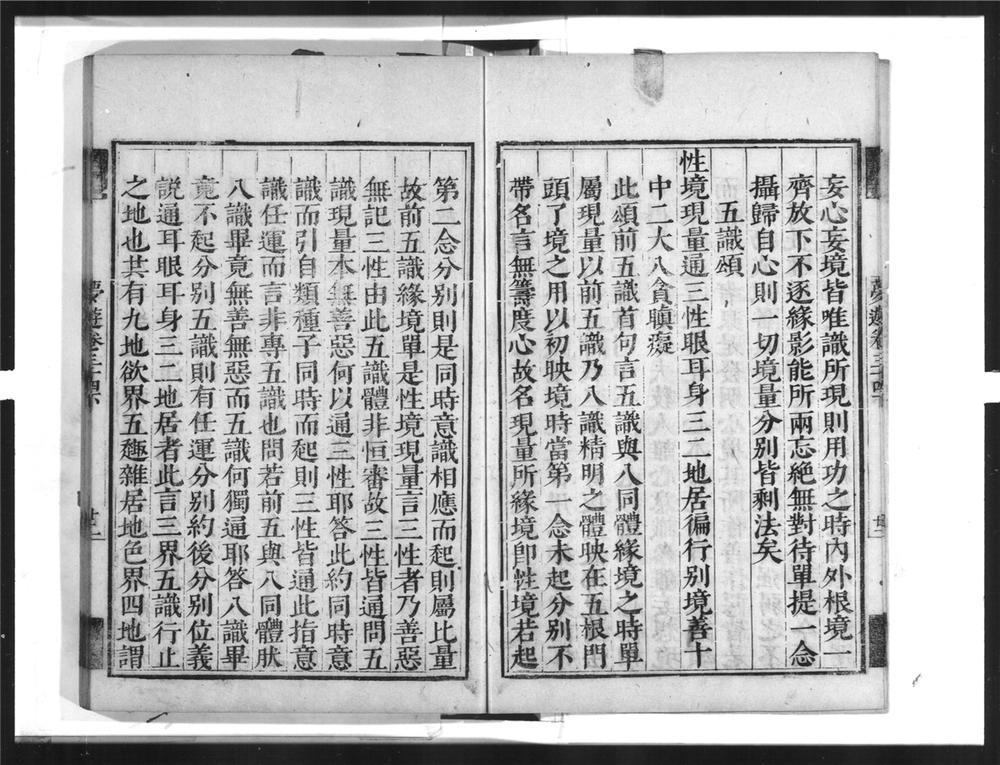 妄心妄境皆唯識所現則用功之時內外根境一
齊放下不逐緣影能所兩忘絕無對待單提一念
攝歸自心則一切境量分別皆剩法矣
五識頌
性境現量通三性眼耳身三二地居徧行別境善十
中二大八貪瞋癡
此頌前五識首句言五識與八同體緣境之時單
屬現量以前五識乃八識精明之體映在五根門
頭了境之用以初映境時當第一念未起分別不
帶名言無籌度心故名現量所緣境卽性境若起
第二念分別則是同時意識相應而起則屬比量
故前五識緣境單是性境現量言三性者乃善惡
無記三性由此五識體非恒審故三性皆通問五
識現量本無善惡何以通三性耶答此約同時意
識而引自類種子同時而起則三性皆通此指意
識任運而言非專五識也問若前五與八同體肰
八識畢竟無善無惡而五識何獨通耶答八識畢
竟不起分別五識則有任運分別約後分別位義
說通耳眼耳身三二地居者此言三界五識行止
之地也其有九地欲界五趣雜居地色界四地謂
夢遊卷三十四